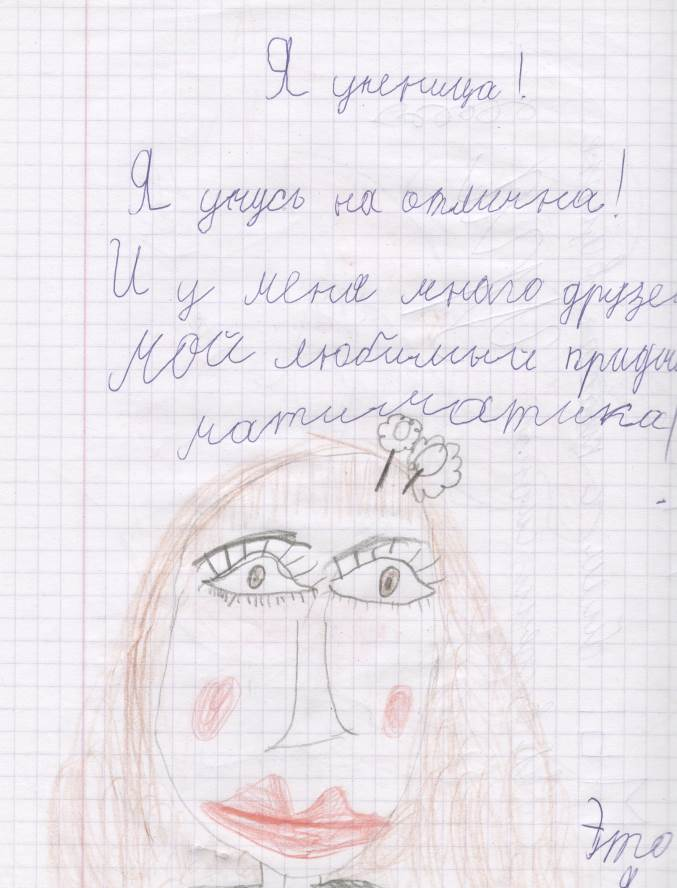 Я ученица!
Я учусь на отлична!
И у меня много друзе
Мой любимый
матиматика
Это
я